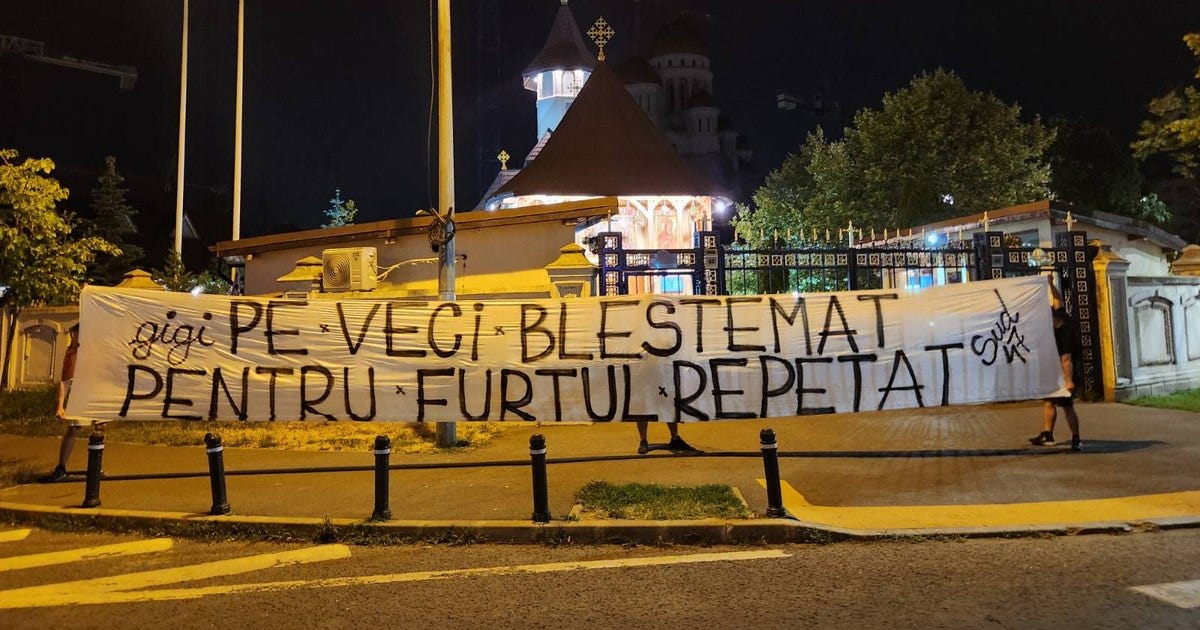 gigi PE × VECI × BLESTEMAT
PENTRU × FURTUL × REPETAT
Sud
47